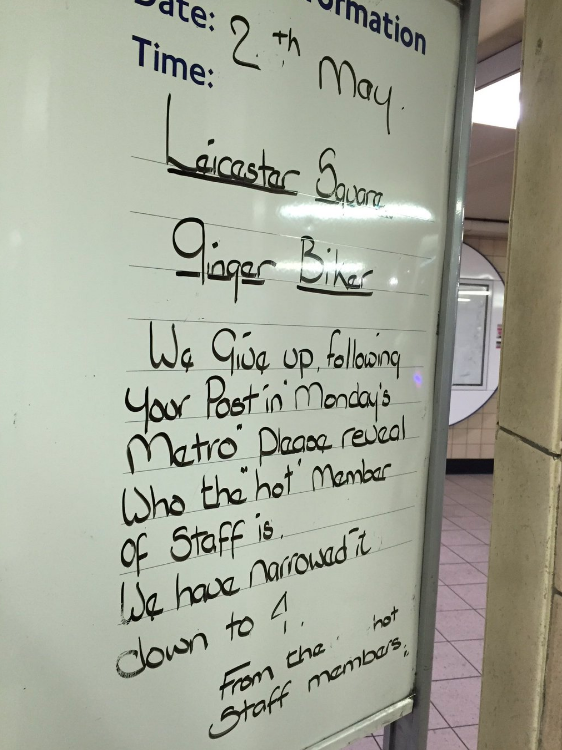 Date: 2.th May.
Time:
Leicester Square
Ginger Biker
We Give up, following
your Post in "Monday's
Metro" Please reveal
Who the "hot" Member
of Staff is.
We have narrowed it
down to 4.
From the hot
Staff members.